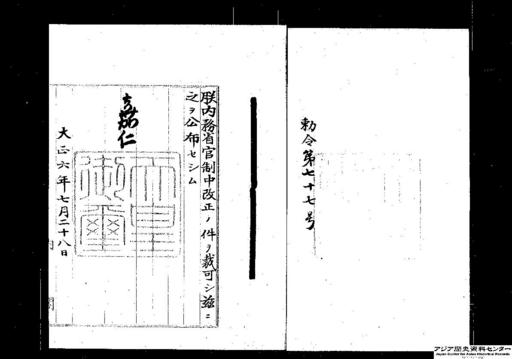 勅令第七十七号
朕内務省官制中改正ノ件ヲ裁可シ茲ニ
之ヲ公布セシム
嘉仁
天皇御璽
大正六年七月二十八日
内閣
アジア歴史資料センター
Japan Center for Asian Historical Records